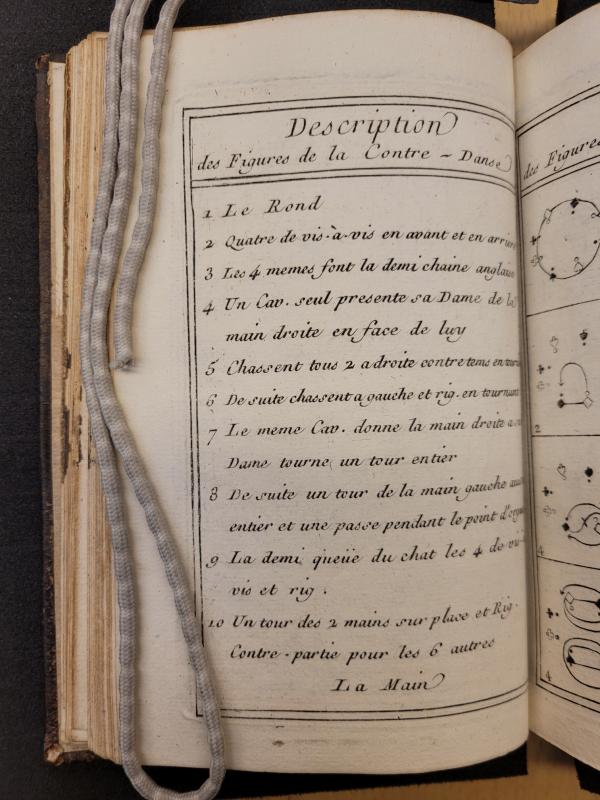 Description
des Figures de la Contre - Danse
1 Le Rond
2 Quatre de vis-à-vis en avant et en arriere
3 Les 4 memes font la demi chaine anglaise
4 Un Cav. seul presente sa Dame de la
main droite en face de luy
5 Chassent tous 2 a droite contretems en
6 De suite chassent a gauche et rig. en tournant
7 Le meme Cav. donne la main droite a
Dame tourne un tour entier
8 De suite un tour de la main gauche
entier et une passe pendant le point d'orgue
9 La demi queüe du chat les 4 de vis
vis et rig.
10 Un tour des 2 mains sur place et Rig.
Contre-partie pour les 6 autres
La Main
des Figures
2
4
4